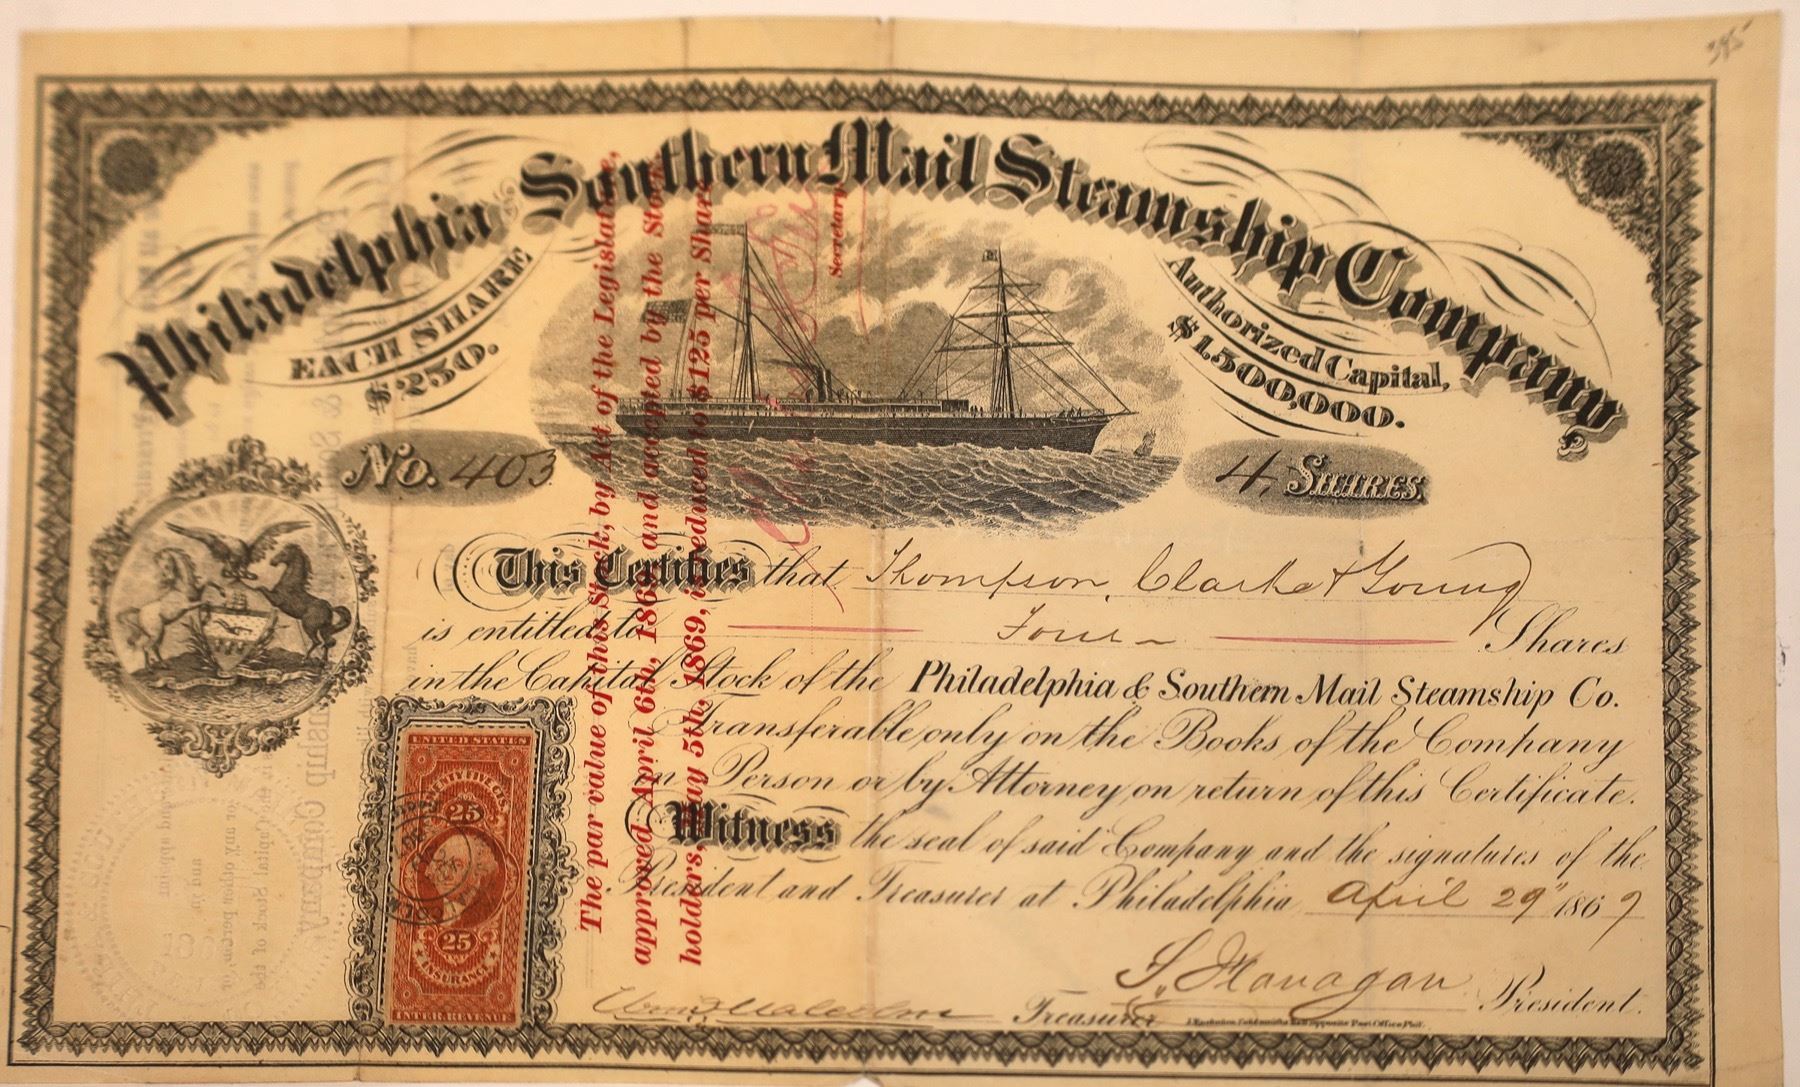 Philadelphia & Southern Mail Steamship Company
EACH SHARE
$250.
Authorized Capital,
$1,500,000.
No. 403
4, SHARES
This Certifies that Thompson, Clarke & Young
is entitled to Four Shares
in the Capital Stock of the Philadelphia & Southern Mail Steamship Co.
Transferable only on the Books of the Company
in Person or by Attorney on return of this Certificate.
Witness the seal of said Company and the signatures of the
President and Treasurer at Philadelphia, April 29" 1869
Treasurer
S. Flanagan President.
The par value of this Stock, by Act of the Legislature,
approved April 6th, 1869 and accepted by the Stock
holders, May 5th, 1869, is reduced to $125 per Share
Secretary
UNITED STATES
TWENTY FIVE CTS.
25
25
INSURANCE
INTER. REVENUE